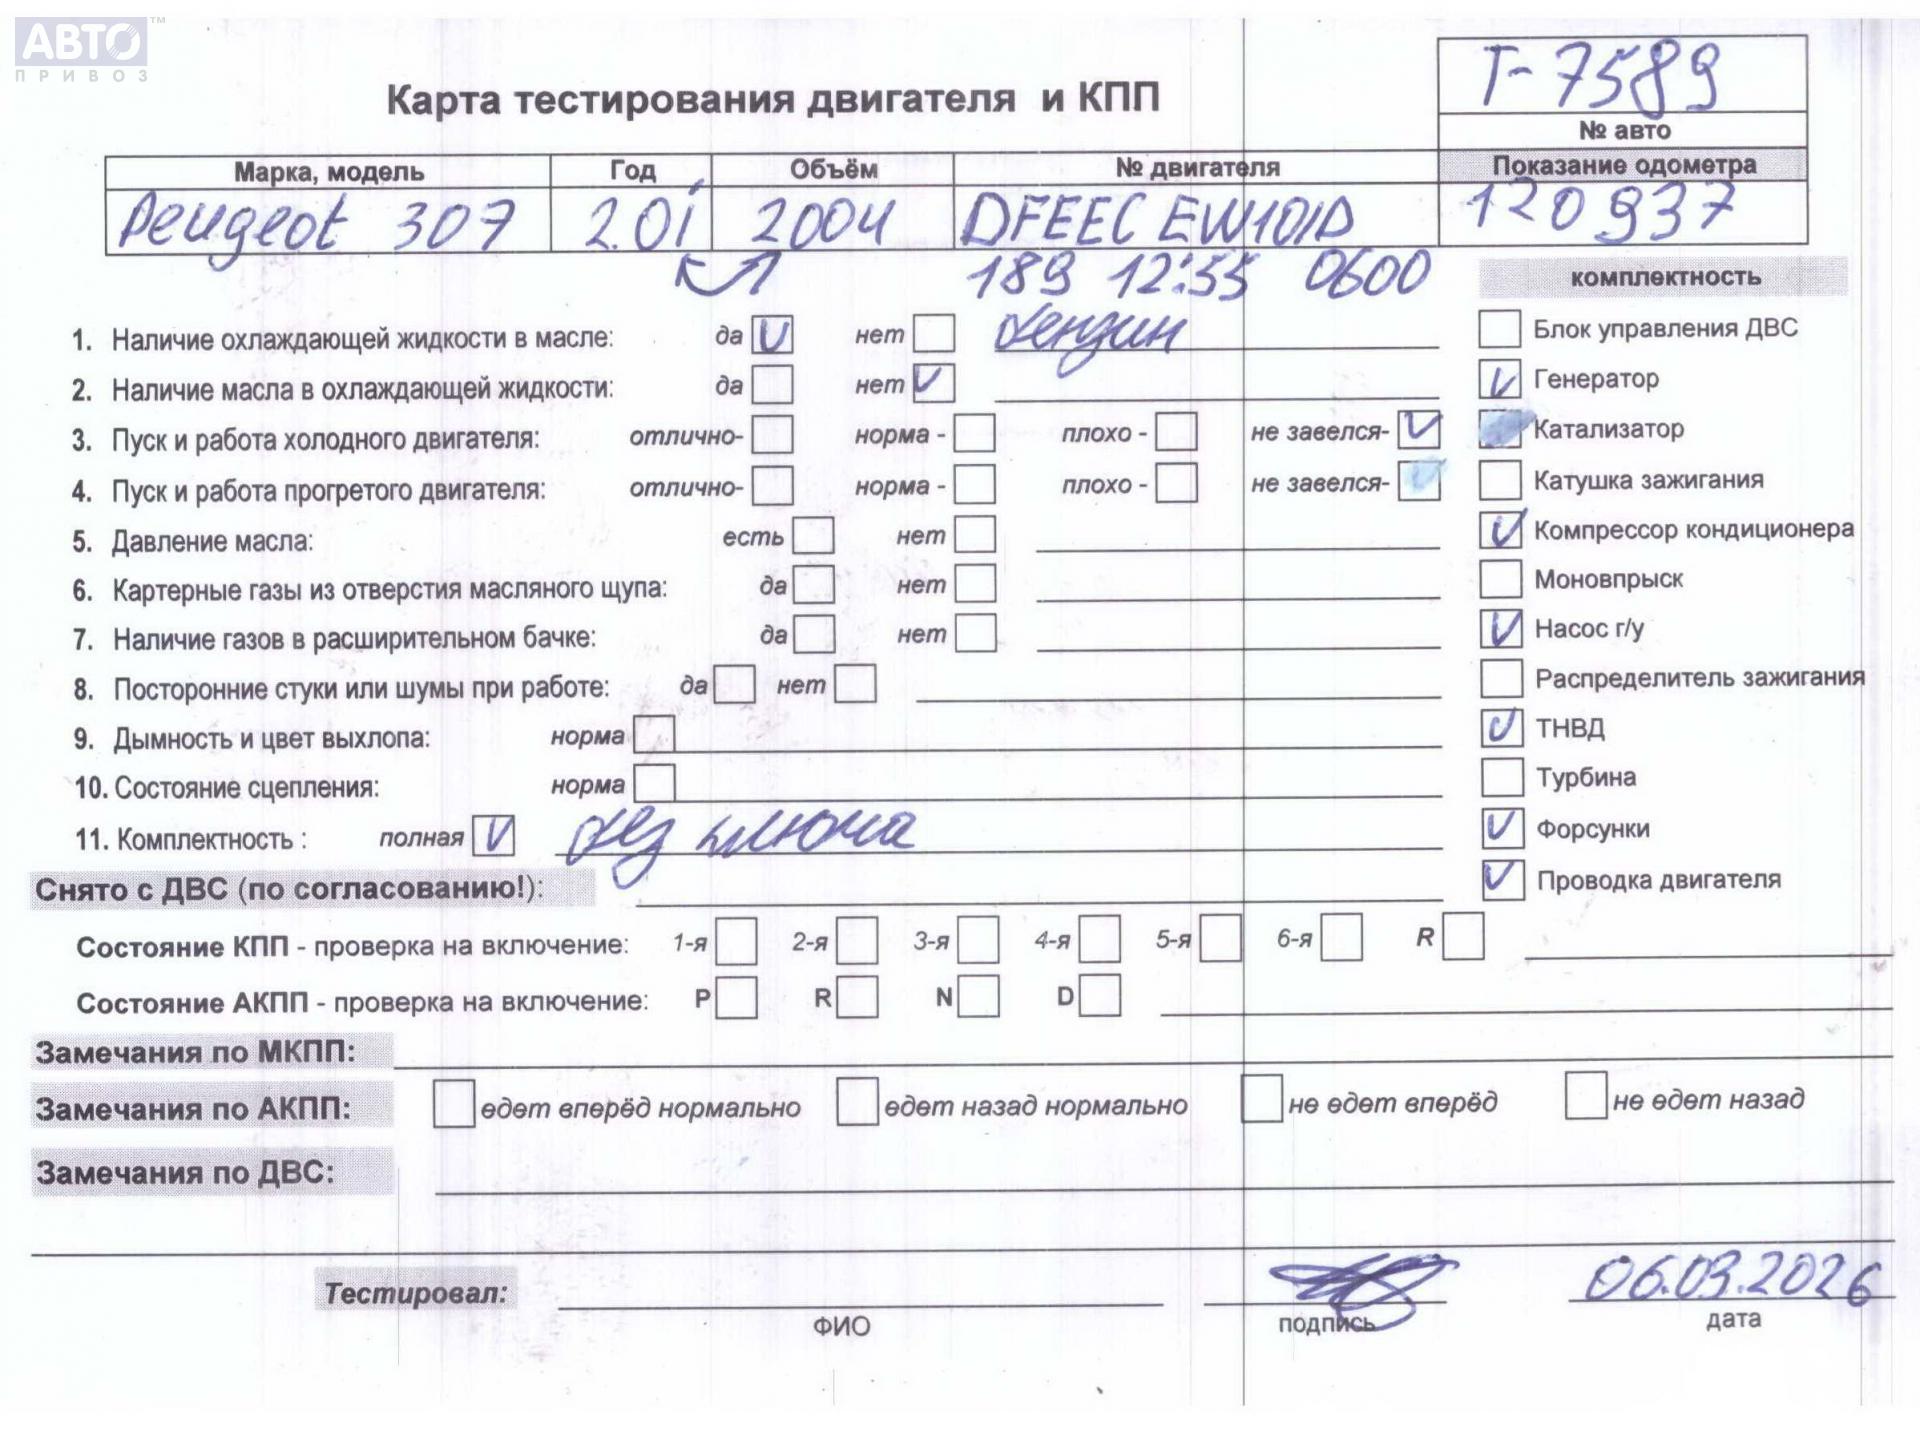 АВТО™
ПРИВОЗ
Т-7589
Карта тестирования двигателя и КПП
№ авто
Марка, модель Год Объём № двигателя Показание одометра
Peugeot 307 2.0i 2004 DFEEC EW10/D 120937
189 12:55 0600
комплектность
1. Наличие охлаждающей жидкости в масле: да V нет бензин
Блок управления ДВС
2. Наличие масла в охлаждающей жидкости: да нет V
V Генератор
3. Пуск и работа холодного двигателя: отлично- норма - плохо - не завелся- V
Катализатор
4. Пуск и работа прогретого двигателя: отлично- норма - плохо - не завелся-
Катушка зажигания
5. Давление масла: есть нет
V Компрессор кондиционера
6. Картерные газы из отверстия масляного щупа: да нет
Моновпрыск
7. Наличие газов в расширительном бачке: да нет
V Насос г/у
8. Посторонние стуки или шумы при работе: да нет
Распределитель зажигания
9. Дымность и цвет выхлопа: норма
V ТНВД
10. Состояние сцепления: норма
Турбина
11. Комплектность : полная V без ключа
V Форсунки
Снято с ДВС (по согласованию!):
V Проводка двигателя
Состояние КПП - проверка на включение: 1-я 2-я 3-я 4-я 5-я 6-я R
Состояние АКПП - проверка на включение: P R N D
Замечания по МКПП:
Замечания по АКПП: едет вперёд нормально едет назад нормально не едет вперёд не едет назад
Замечания по ДВС:
Тестировал: 06.03.2026
ФИО подпись дата